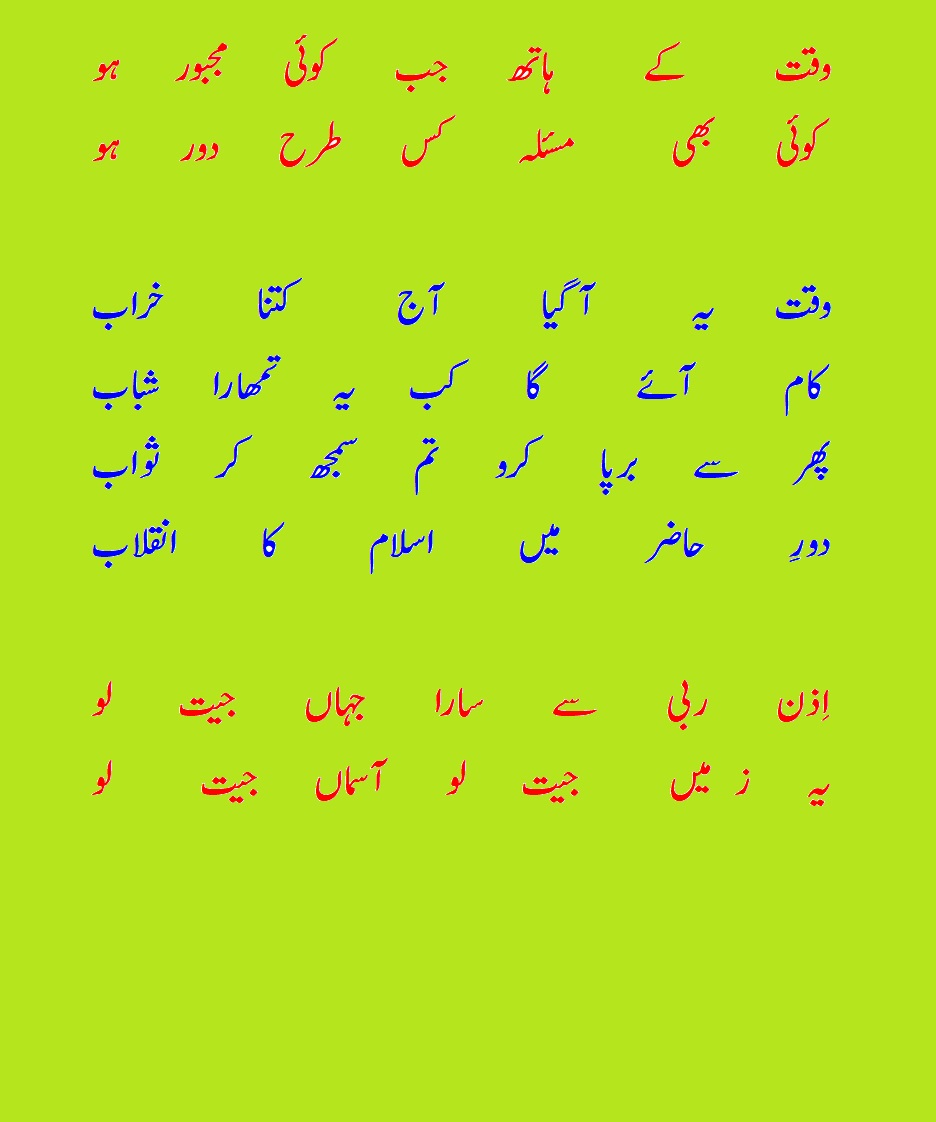 وقت کے ہاتھ جب کوئی مجبور ہو
کوئی بھی مسئلہ کس طرح دور ہو
وقت یہ آ گیا آج کتنا خراب
کام آئے گا کب یہ تمھارا شباب
پھر سے برپا کرو تم سمجھ کر ثواب
دورِ حاضر میں اسلام کا انقلاب
اِذن ربی سے سارا جہاں جیت لو
یہ ز میں جیت لو آسماں جیت لو